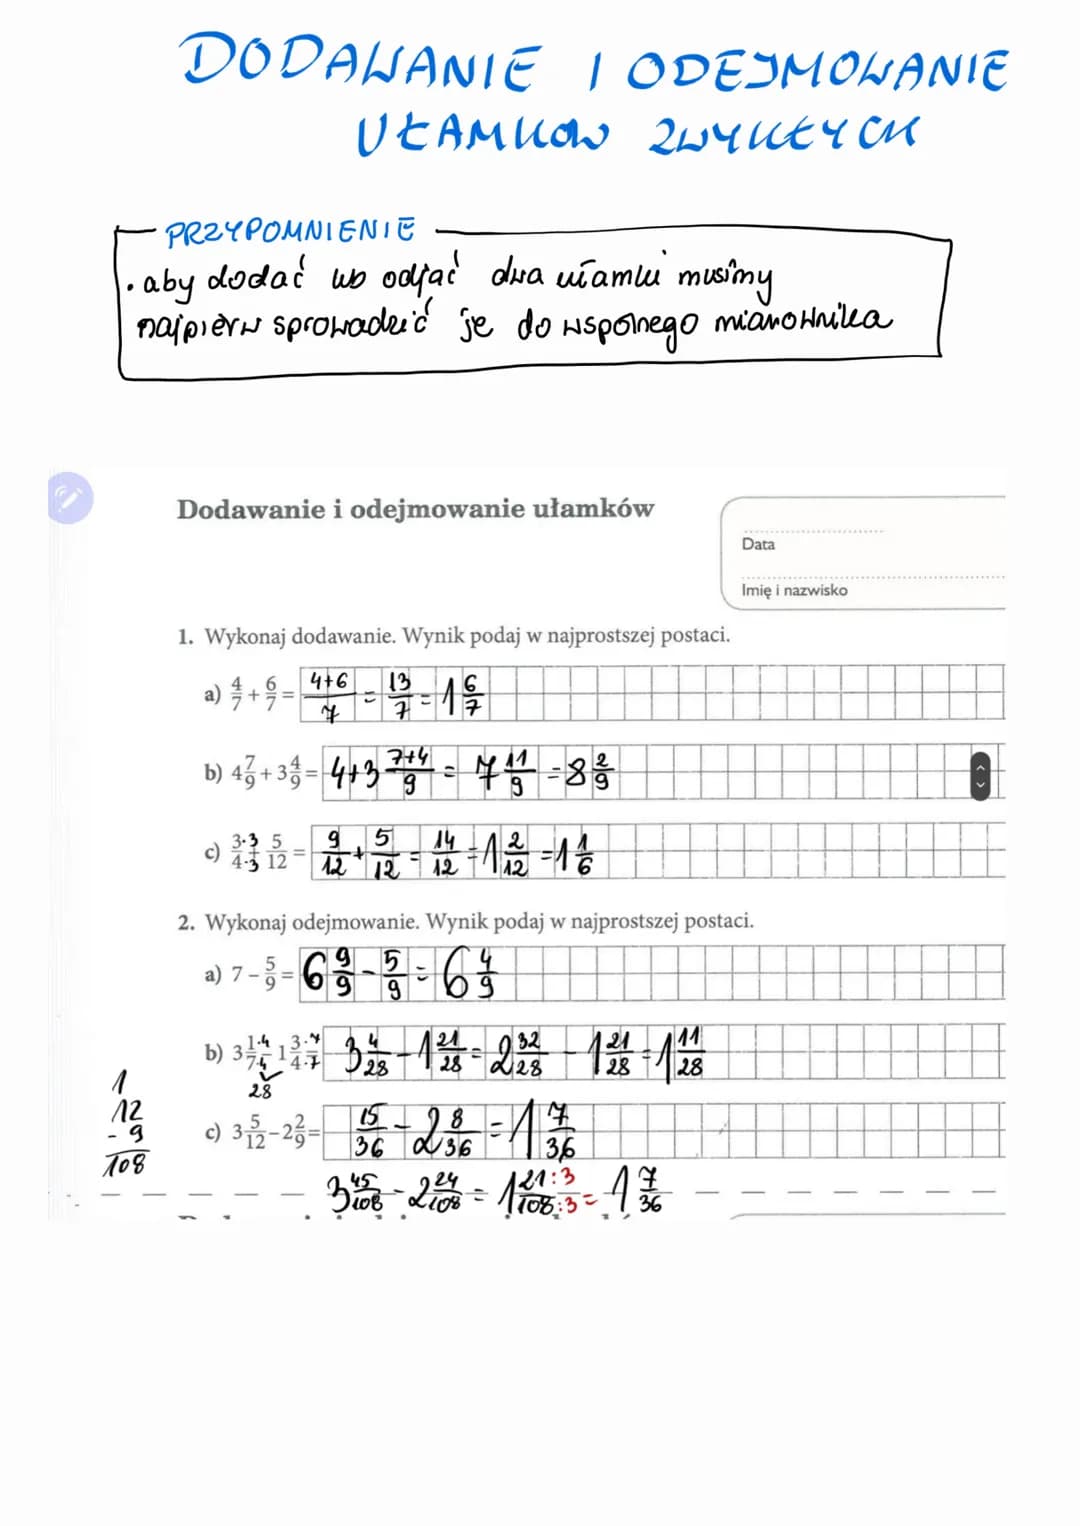 DODAWANIE I ODEJMOWANIE
UŁAMKÓW ZWYKŁYCH
PRZYPOMNIENIE
• aby dodać lub odjąć dwa ułamki musimy
najpierw sprowadzić je do wspólnego mianownika
Dodawanie i odejmowanie ułamków
Data
Imię i nazwisko
1. Wykonaj dodawanie. Wynik podaj w najprostszej postaci.
a) 4/7 + 6/7 = 4+6/7 = 13/7 = 1 6/7
b) 4 7/9 + 3 4/9 = 4+3 7+4/9 = 7 11/9 = 8 2/9
c) 3·3/4·3 + 5/12 = 9/12 + 5/12 = 14/12 = 1 2/12 = 1 1/6
2. Wykonaj odejmowanie. Wynik podaj w najprostszej postaci.
a) 7 − 5/9 = 6 9/9 − 5/9 = 6 4/9
b) 3 1·4/7·4 − 1 3·7/4·7 = 3 4/28 − 1 21/28 = 2 32/28 − 1 21/28 = 1 11/28
28
c) 3 5/12 − 2 2/9 = 15/36 − 2 8/36 = 1 7/36
3 45/108 − 2 24/108 = 1 21:3/108:3 = 1 7/36
1
12
- 9
108